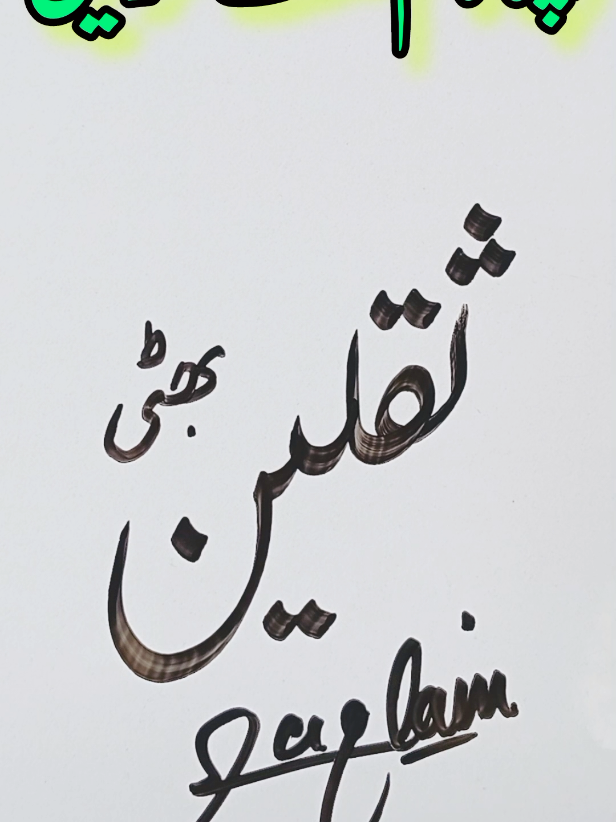 ثقلین
بھٹی
Saqlain